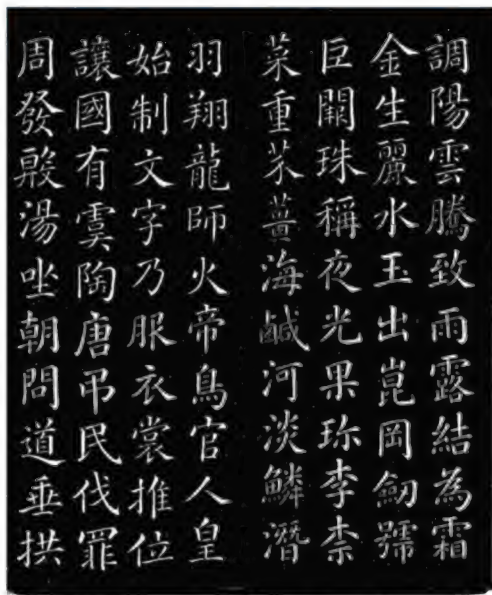 調陽雲騰致雨露結為霜
金生麗水玉出崑岡劒號
巨闕珠稱夜光果珎李柰
菜重芥薑海鹹河淡鱗潛
羽翔龍師火帝鳥官人皇
始制文字乃服衣裳推位
讓國有虞陶唐弔民伐罪
周發殷湯坐朝問道垂拱